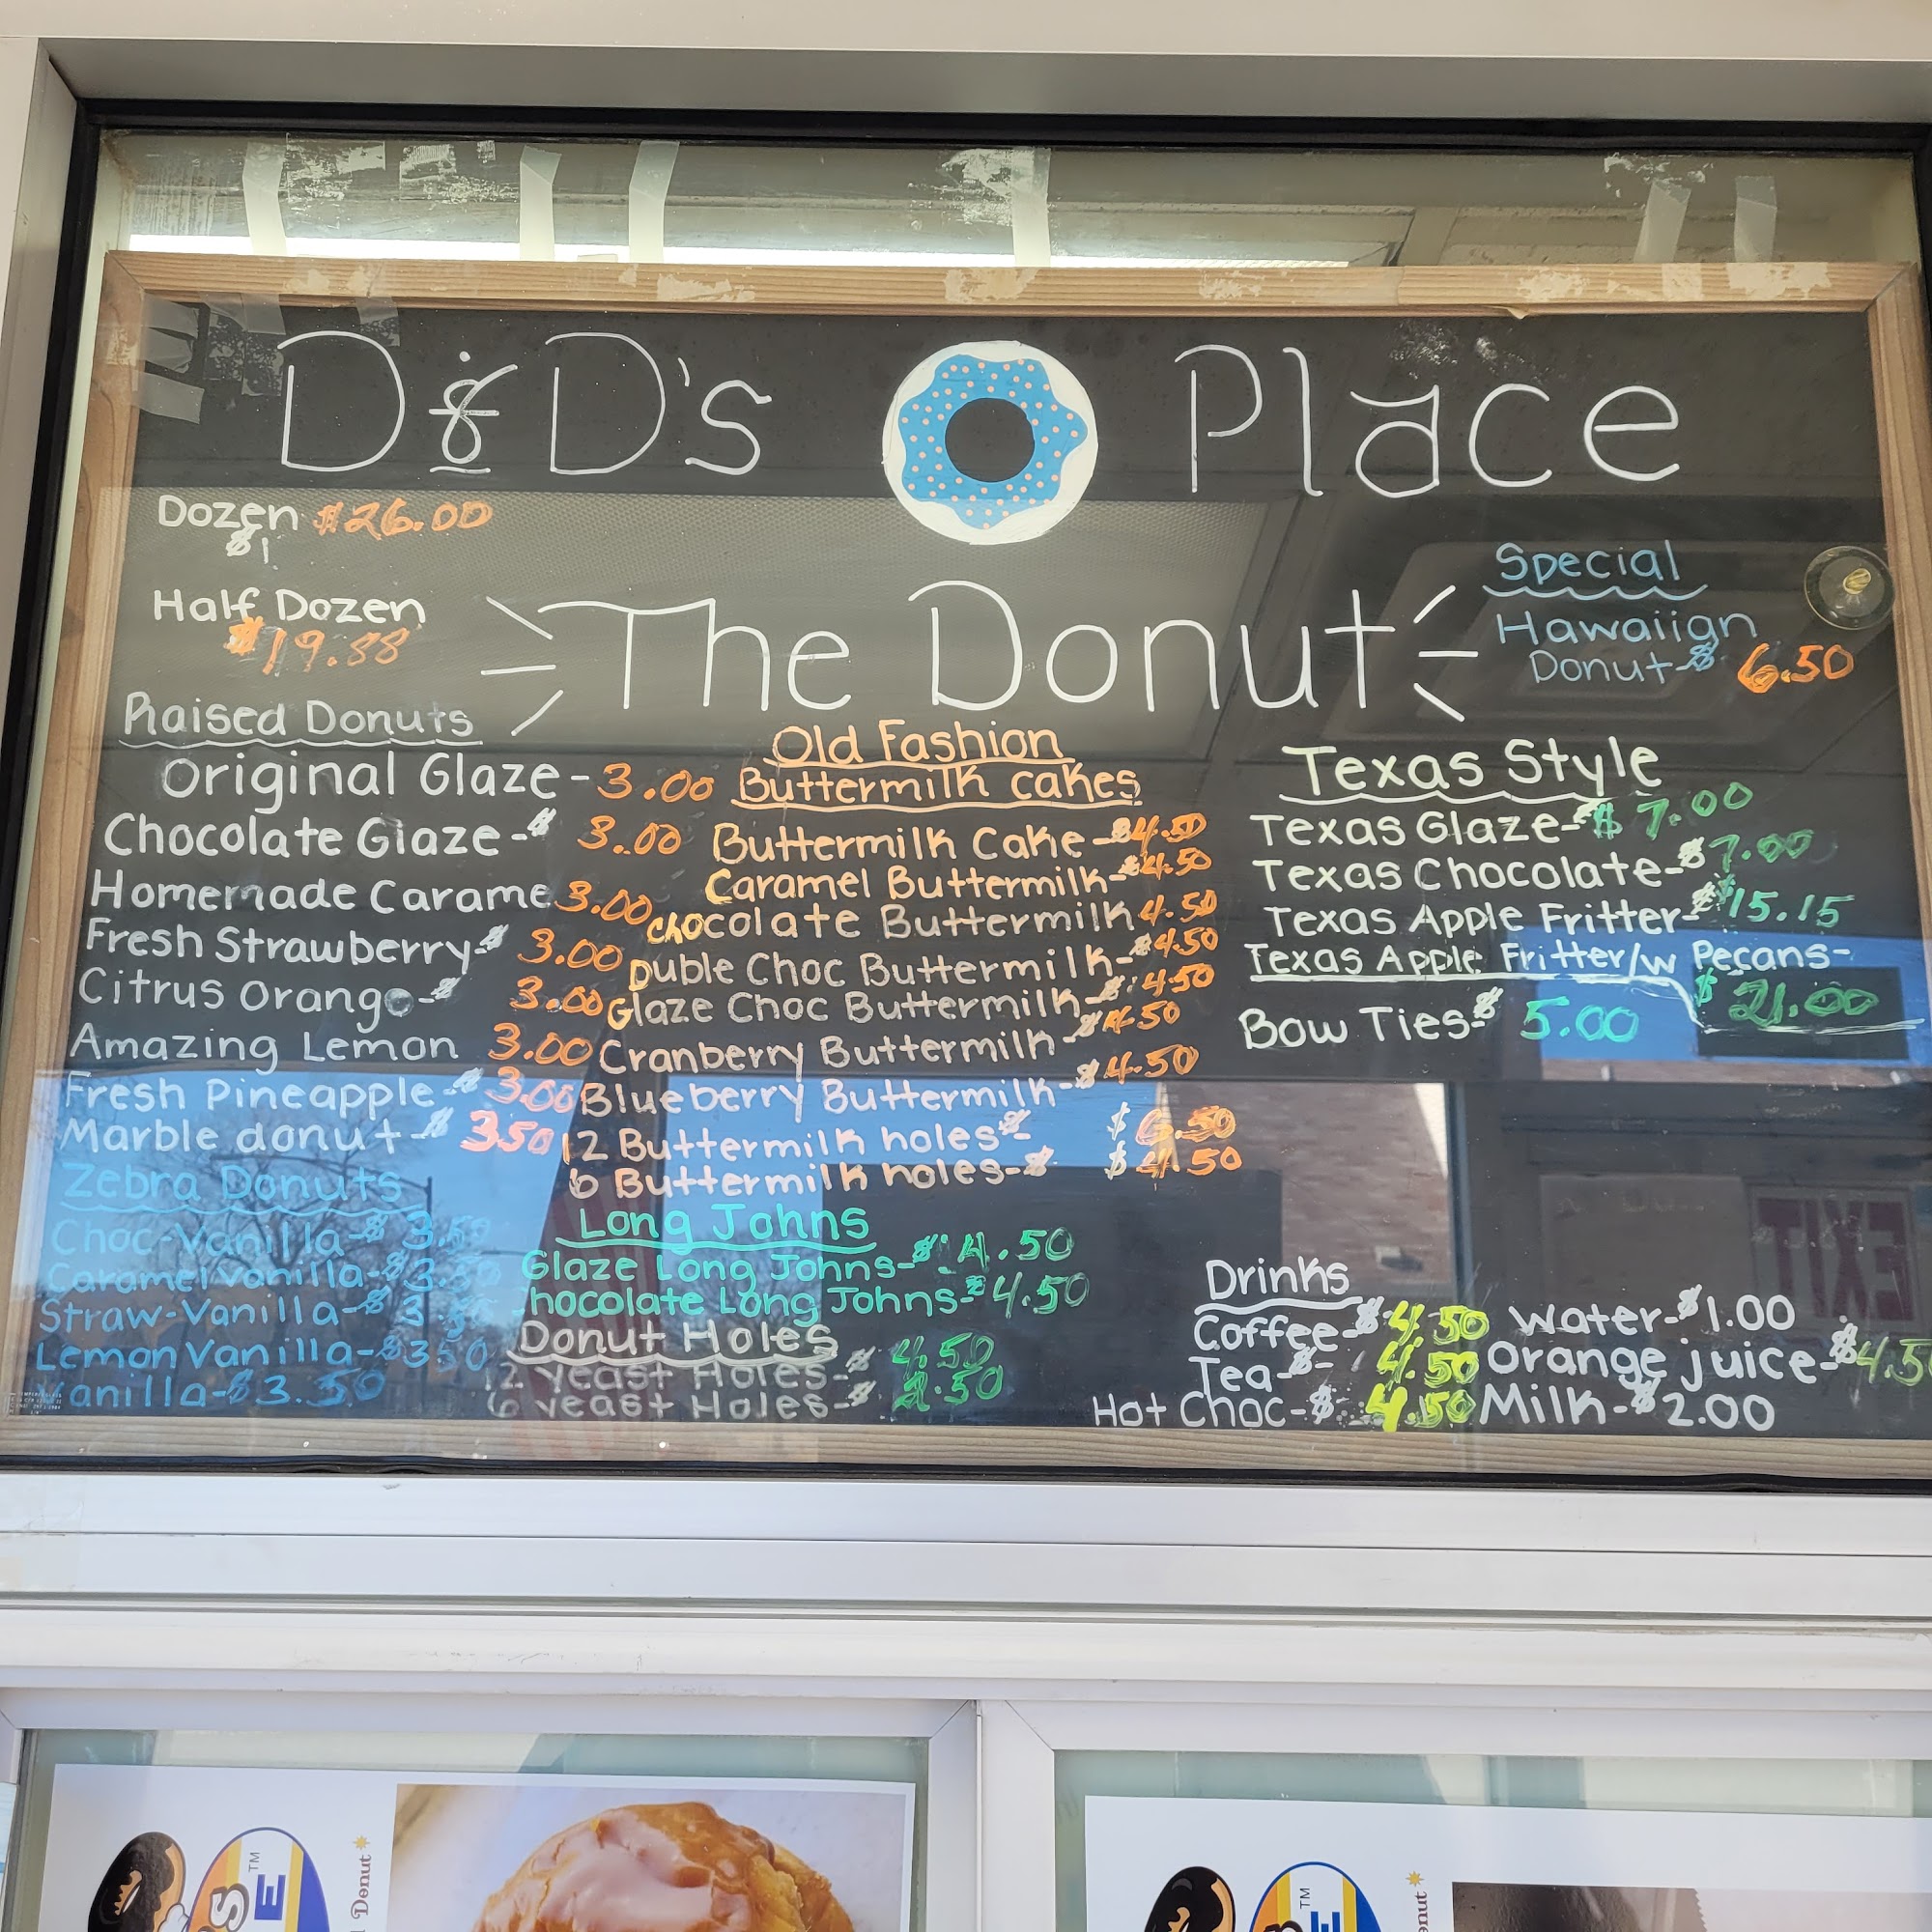 D&D's Place
Dozen $26.00
$1
Half Dozen
$19.88
The Donut
Special
Hawaiian
Donut-$ 6.50
Raised Donuts
Original Glaze- 3.00
Chocolate Glaze-$ 3.00
Homemade Carame 3.00
Fresh Strawberry-$ 3.00
Citrus Orange-$ 3.00
Amazing Lemon 3.00
Fresh Pineapple-$ 3.00
Marble donut-$ 3.50
Zebra Donuts
Choc-Vanilla-$ 3.50
Caramel Vanilla-$3.50
Straw-Vanilla-$ 3.50
Lemon Vanilla-$3.50
Vanilla-$3.50
Old Fashion
Buttermilk cakes
Buttermilk Cake-$4.50
Caramel Buttermilk-$4.50
Chocolate Buttermilk 4.50
Duble Choc Buttermilk-$4.50
Glaze Choc Buttermilk-$4.50
Cranberry Buttermilk-$4.50
Blueberry Buttermilk-$4.50
12 Buttermilk holes-$ $ 6.50
6 Buttermilk holes-$ $ 4.50
Long Johns
Glaze Long Johns-$ 4.50
Chocolate Long Johns-$4.50
Donut Holes
12 Yeast Holes-$ 4.50
6 Yeast Holes-$ 2.50
Texas Style
Texas Glaze-$ 7.00
Texas Chocolate-$7.00
Texas Apple Fritter-$15.15
Texas Apple Fritter/w Pecans-
$ 21.00
Bow Ties-$ 5.00
Drinks
Coffee-$4.50
Tea-$- 4.50
Hot Choc-$ 4.50
Water-$1.00
Orange juice-$4.5
Milk-$2.00
EXIT
Donut
S
E™
™